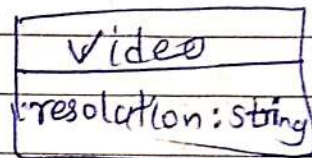 Video
resolution: string